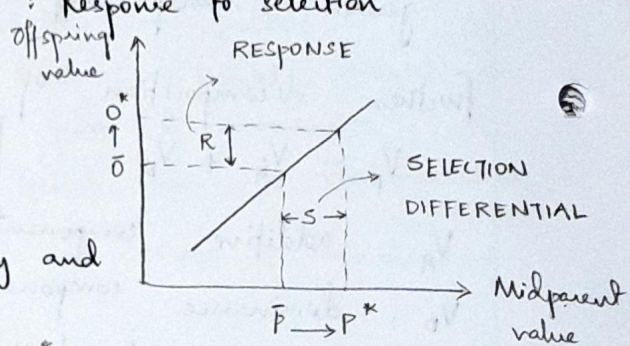 : Response to selection
offspring
value
RESPONSE
O*
↑
Ō
R
SELECTION
DIFFERENTIAL
←S→
y and
P̄ → P*
Midparent
value